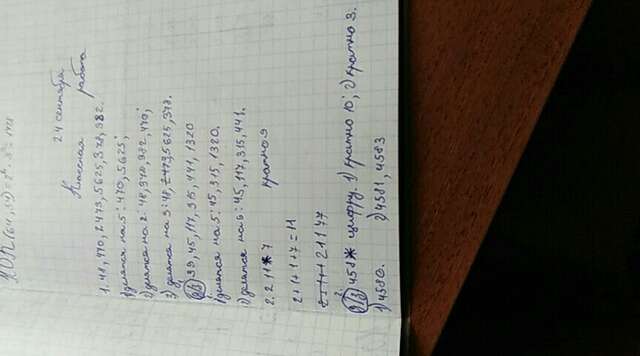 24 сентября
Классная работа
1. 48, 470, 2473, 5625, 378, 982.
1) делятся на 5: 470, 5625;
2) делятся на 2: 48, 378, 982, 470;
3) делятся на 3: 48, 5625, 378.
39, 45, 117, 315, 441, 1320
1) делятся на 5: 45, 315, 1320.
2) делятся на 9: 45, 117, 315, 441.
2. 211*7 кратно 9
2+1+1+7=11
21177
458* цифру. 1) кратно 10; 2) кратно 3.
1) 4580. 2) 4581, 4583